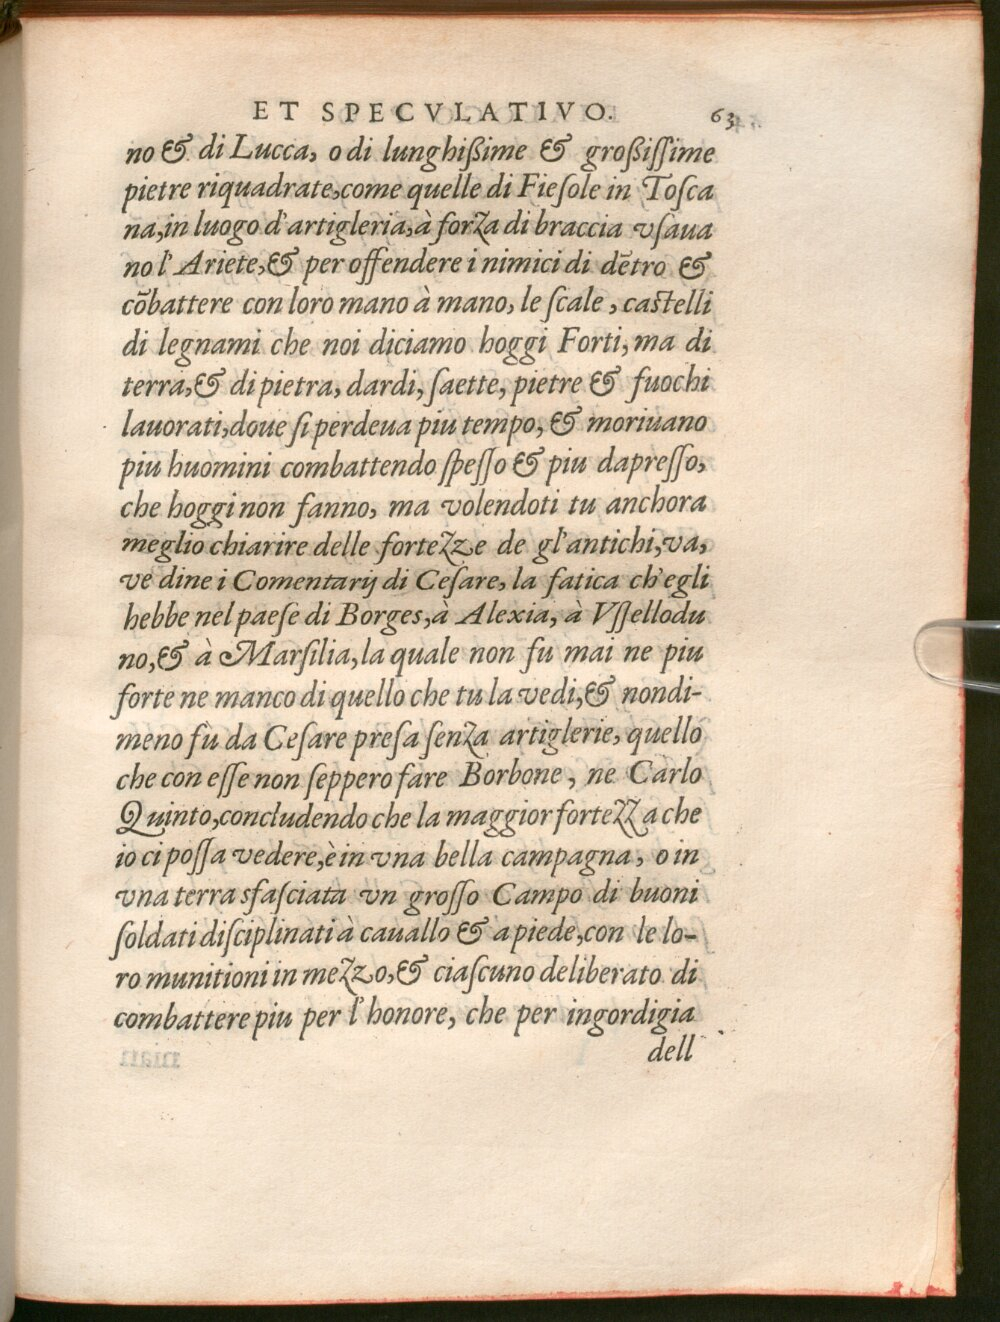 ET SPECVLATIVO. 63
no & di Lucca, o di lunghißime & großiſſime
pietre riquadrate, come quelle di Fieſole in Toſca
na, in luogo d'artigleria, à forza di braccia vſaua
no l'Ariete, & per offendere i nimici di dētro &
cōbattere con loro mano à mano, le ſcale, caſtelli
di legnami che noi diciamo hoggi Forti, ma di
terra, & di pietra, dardi, ſaette, pietre & fuochi
lauorati, doue ſi perdeua piu tempo, & moriuano
piu huomini combattendo ſpeſſo & piu dapreſſo,
che hoggi non fanno, ma volendoti tu anchora
meglio chiarire delle fortezze de gl'antichi, va,
ve dine i Comentarij di Ceſare, la fatica ch'egli
hebbe nel paeſe di Borges, à Alexia, à Vſſellodu
no, & à Marſilia, la quale non fu mai ne piu
forte ne manco di quello che tu la vedi, & nondi-
meno fù da Ceſare preſa ſenza artiglerie, quello
che con eſſe non ſeppero fare Borbone, ne Carlo
Quinto, concludendo che la maggior fortezza che
io ci poſſa vedere, è in vna bella campagna, o in
vna terra sfaſciata vn groſſo Campo di buoni
ſoldati diſciplinati à cauallo & a piede, con le lo-
ro munitioni in mezzo, & ciaſcuno deliberato di
combattere piu per l'honore, che per ingordigia
dell